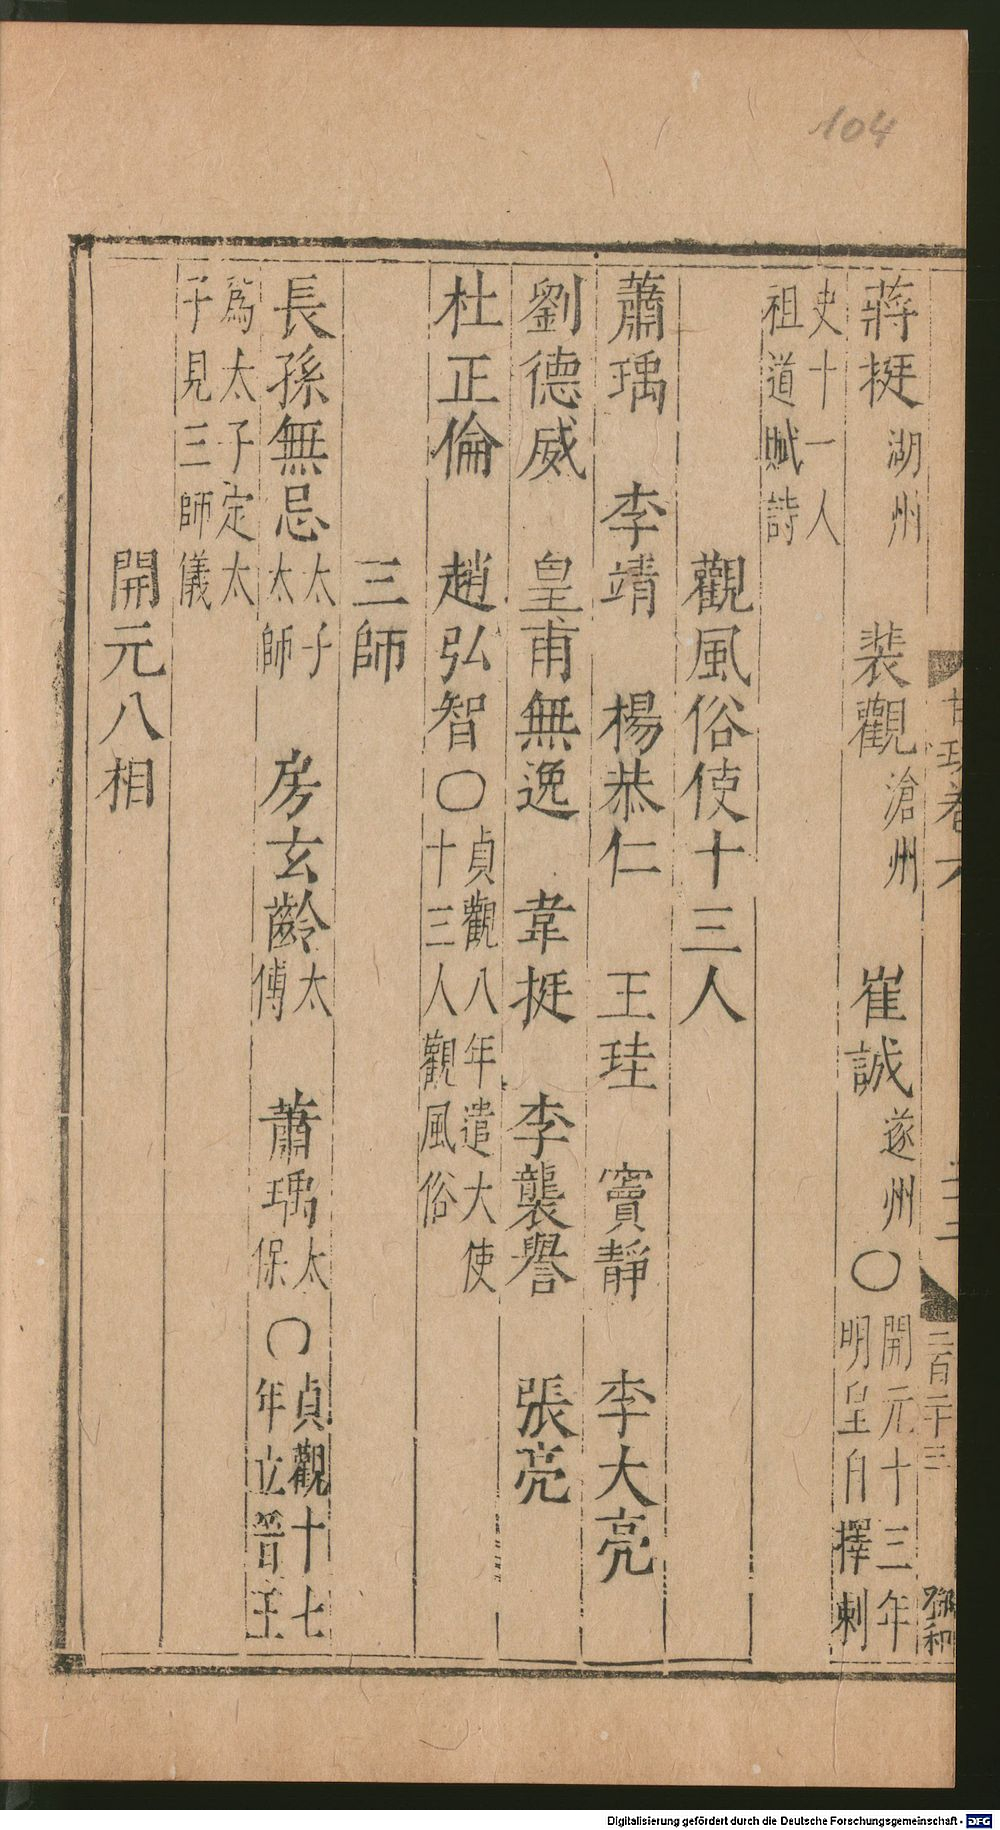 104
蔣挺 湖州 裴觀 滄州 崔誠 遂州 〇 開元十三年
明皇自擇刺
史十一人
祖道賦詩
觀風俗使十三人
蕭瑀 李靖 楊恭仁 王珪 竇靜 李大亮
劉德威 皇甫無逸 韋挺 李襲譽 張亮
杜正倫 趙弘智 〇 貞觀八年遣大使
十三人觀風俗
三師
長孫無忌 太子
太師 房玄齡 太
傅 蕭瑀 太
保 〇 貞觀十七
年立晉王
為太子定太
子見三師儀
開元八相
卷六
二百二十三
Digitalisierung gefördert durch die Deutsche Forschungsgemeinschaft - DFG